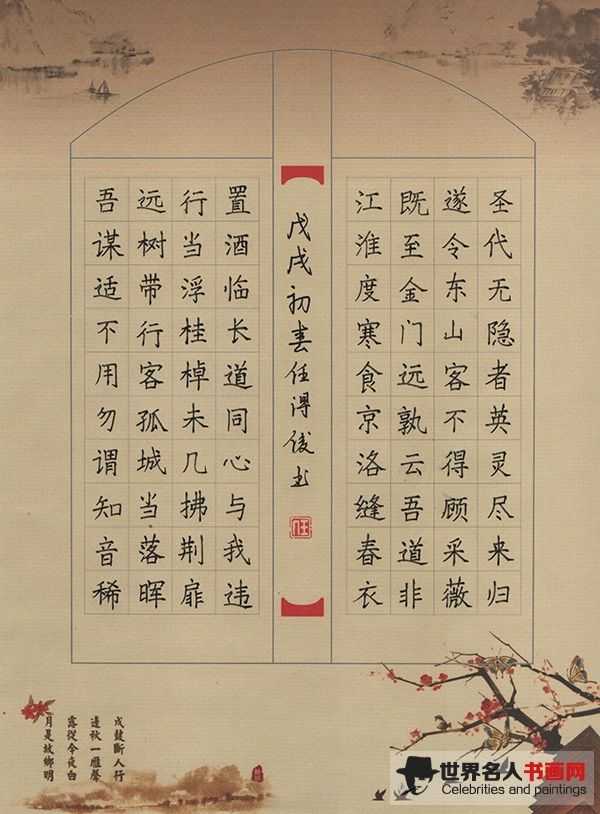 圣代无隐者英灵尽来归
遂令东山客不得顾采薇
既至金门远孰云吾道非
江淮度寒食京洛缝春衣
戊戌初春任得俊书
任
置酒临长道同心与我违
行当浮桂棹未几拂荆扉
远树带行客孤城当落晖
吾谋适不用勿谓知音稀
戍鼓斷人行
邊秋一雁聲
露從今夜白
月是故鄉明
世界名人书画网
Celebrities and paintings